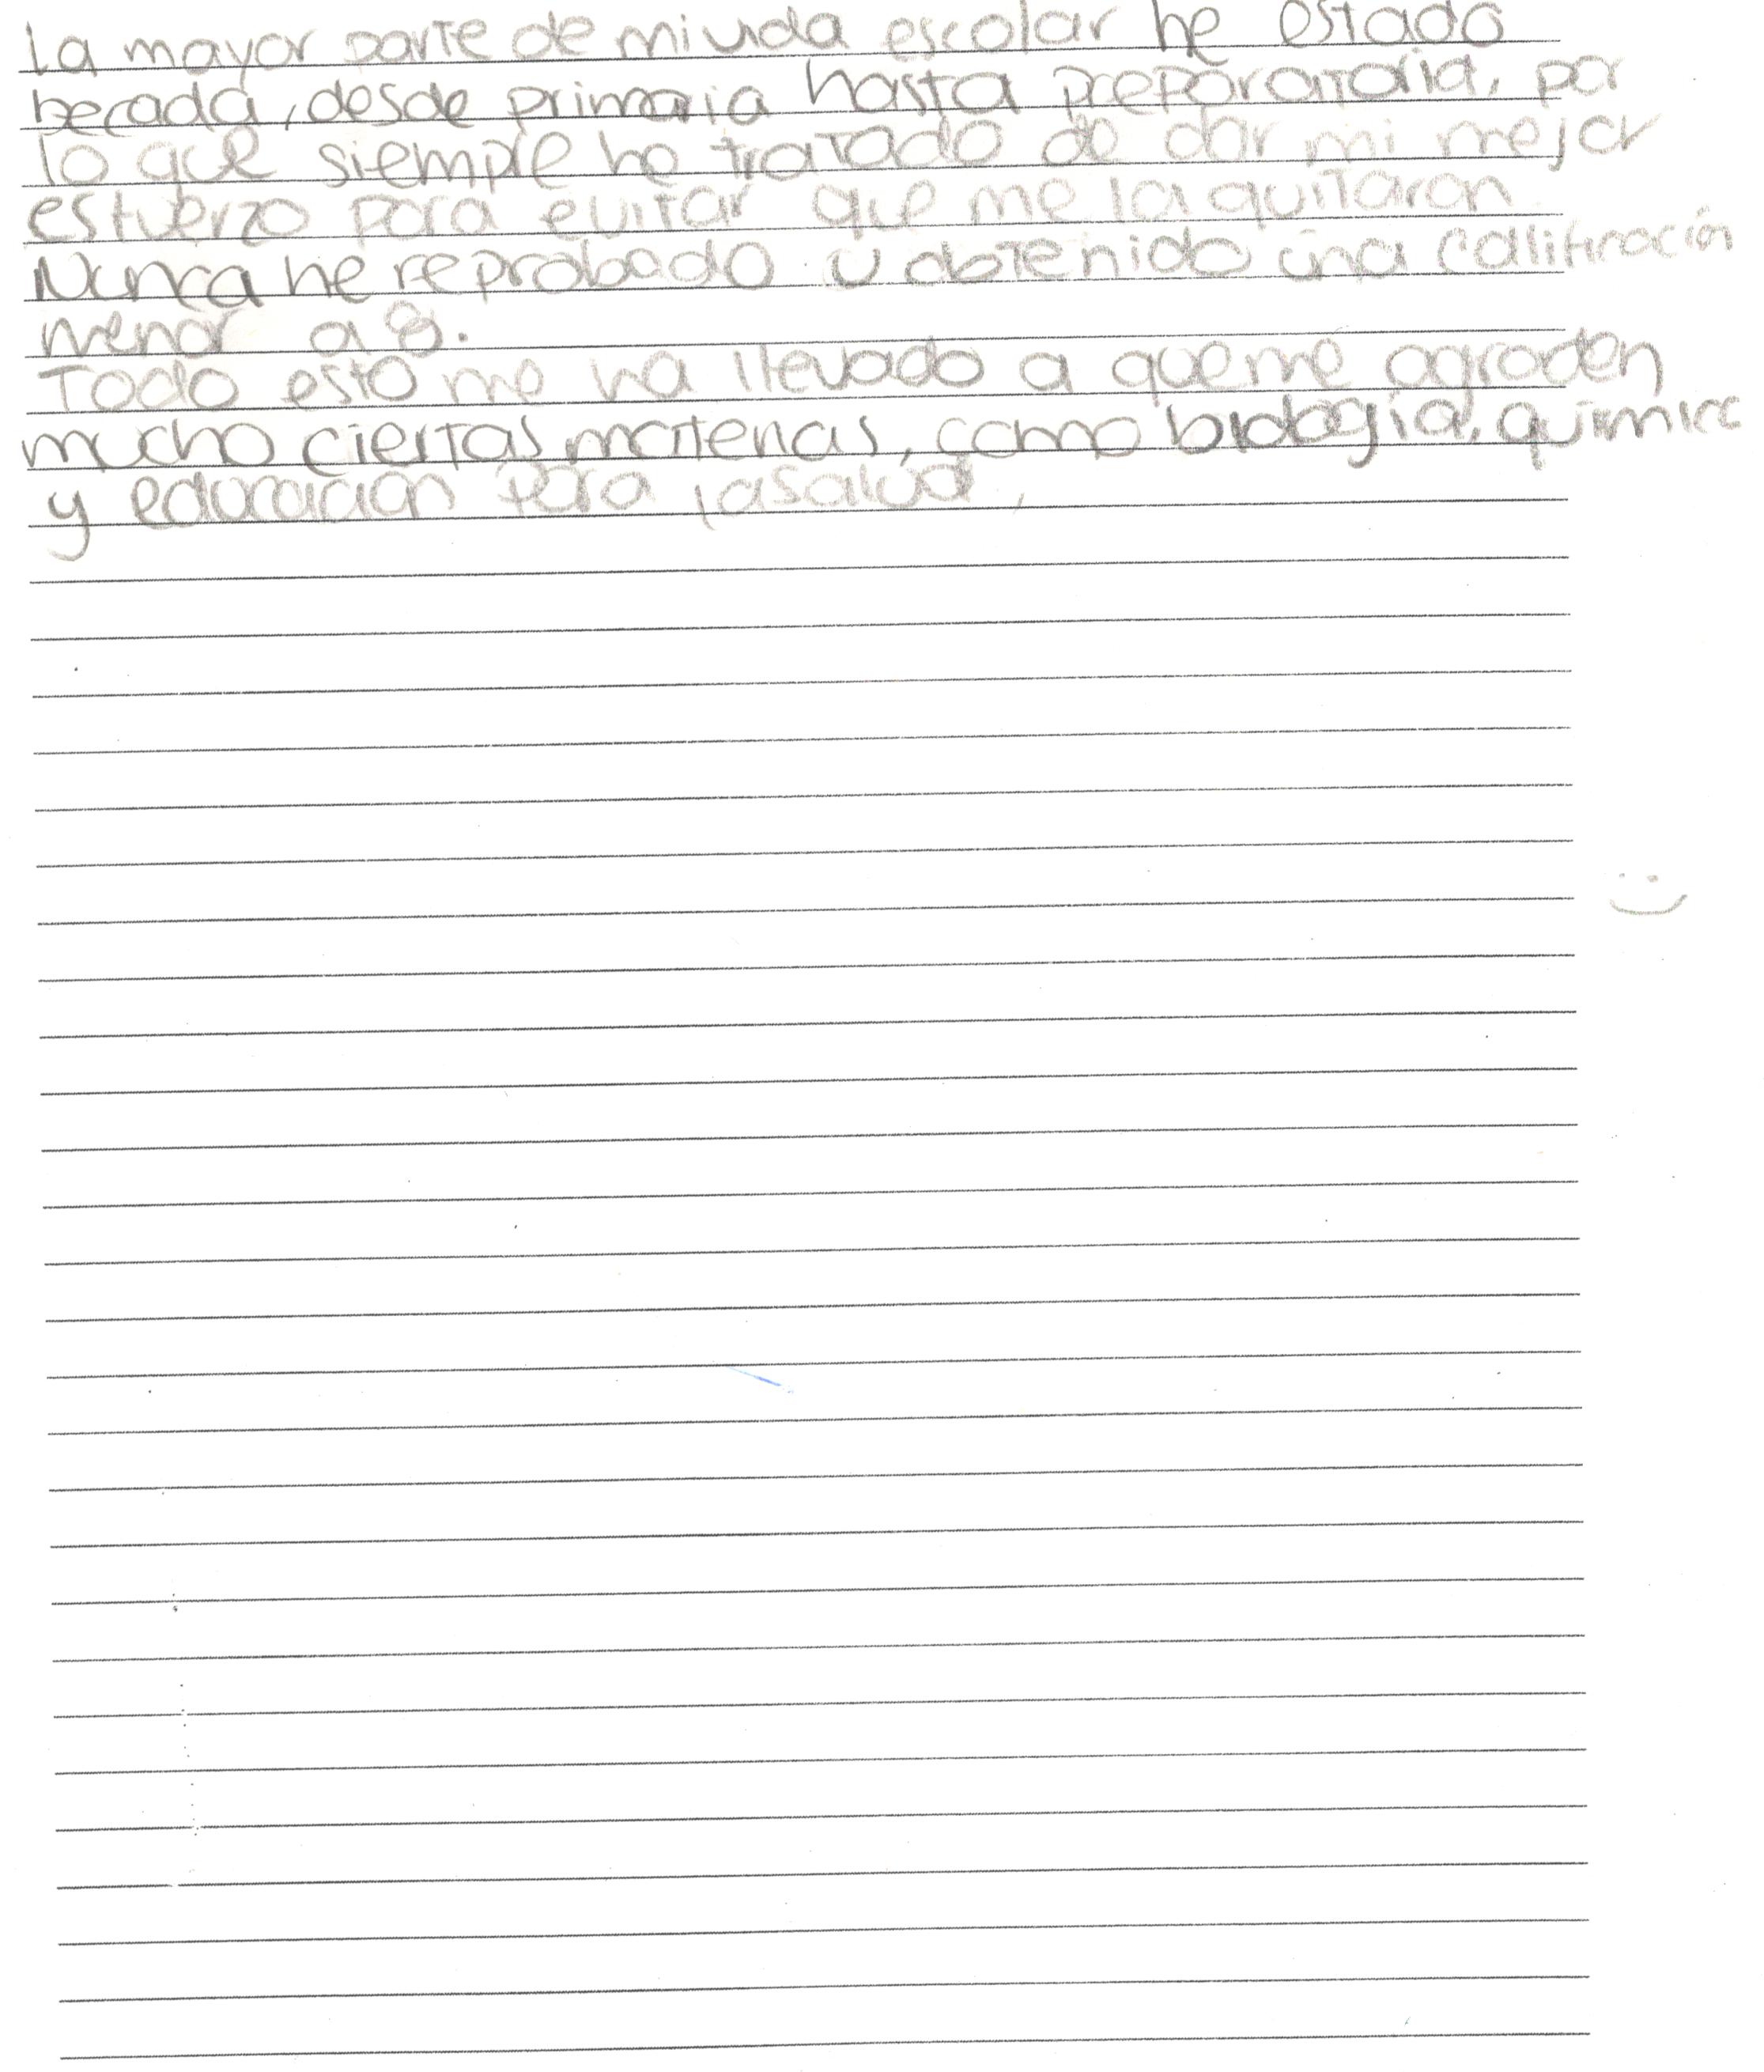 La mayor parte de mi vida escolar he estado
becada, desde primaria hasta preparatoria, por
lo que siempre he tratado de dar mi mejor
esfuerzo para evitar que me la quitaran
Nunca he reprobado u obtenido una calificación
menor a 8.
Todo esto me ha llevado a que me agraden
mucho ciertas materias, como biología, química
y educación para la salud,